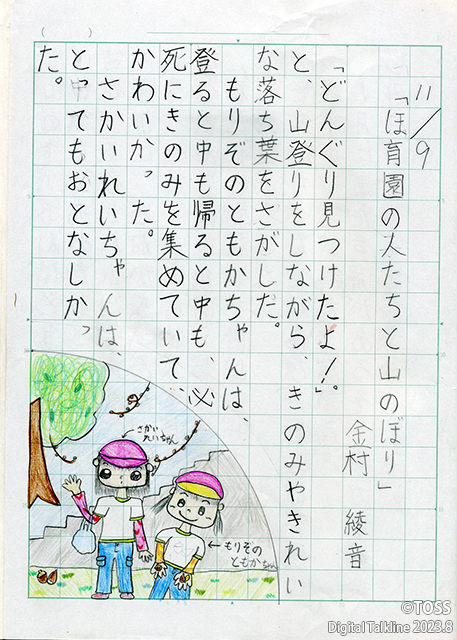 ( )
11/9
「ほ育園の人たちと山のぼり」
金村 綾音
「どんぐり見つけたよ！。」
と、山登りをしながら、きのみやきれい
な落ち葉をさがした。
もりぞのともかちゃんは、
登ると中も帰ると中も、必
死にきのみを集めていて、
かわいかった。
さかいれいちゃんは、
とってもおとなしかっ
た。
さかい
れいちゃん
もりぞの
ともかちゃん
©TOSS
Digital Talkline 2023.8